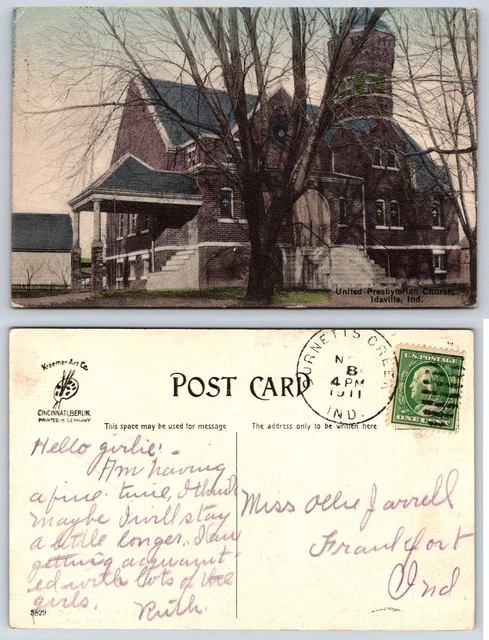 United Presbyterian Church,
Idaville, Ind.
Kraemer Art Co
CINCINNATI, BERLIN.
PRINTED IN GERMANY
POST CARD
BURNETTS CREEK
8
4 PM
1911
IND.
U.S. POSTAGE
ONE CENT
This space may be used for message
The address only to be written here
Hello girlie! -
Am having
a fine time, I think
maybe I will stay
a little longer. I am
getting acquaint
ed with lots of the
girls.
Ruth.
Miss Ollie Jarrell
Frankfort
Ind.
3829